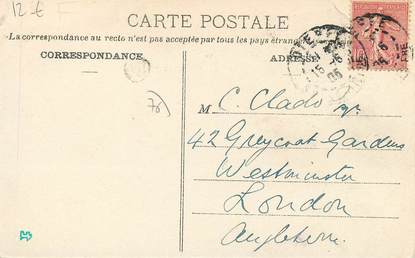 12 €
CARTE POSTALE
La correspondance au recto n'est pas acceptée par tous les pays étrangers
CORRESPONDANCE
ADRESSE
DIEPPE
76
M C. Clado
42 Greycoat Gardens
Westminster
London
Angleterre